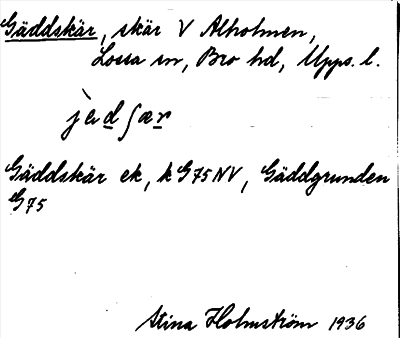 Gäddskär, skär V Alholmen,
Lossa sn, Bro hd, Upps. l.
Gäddskär ek, k G75NV, Gäddgrunden
G75
Stina Holmström 1936